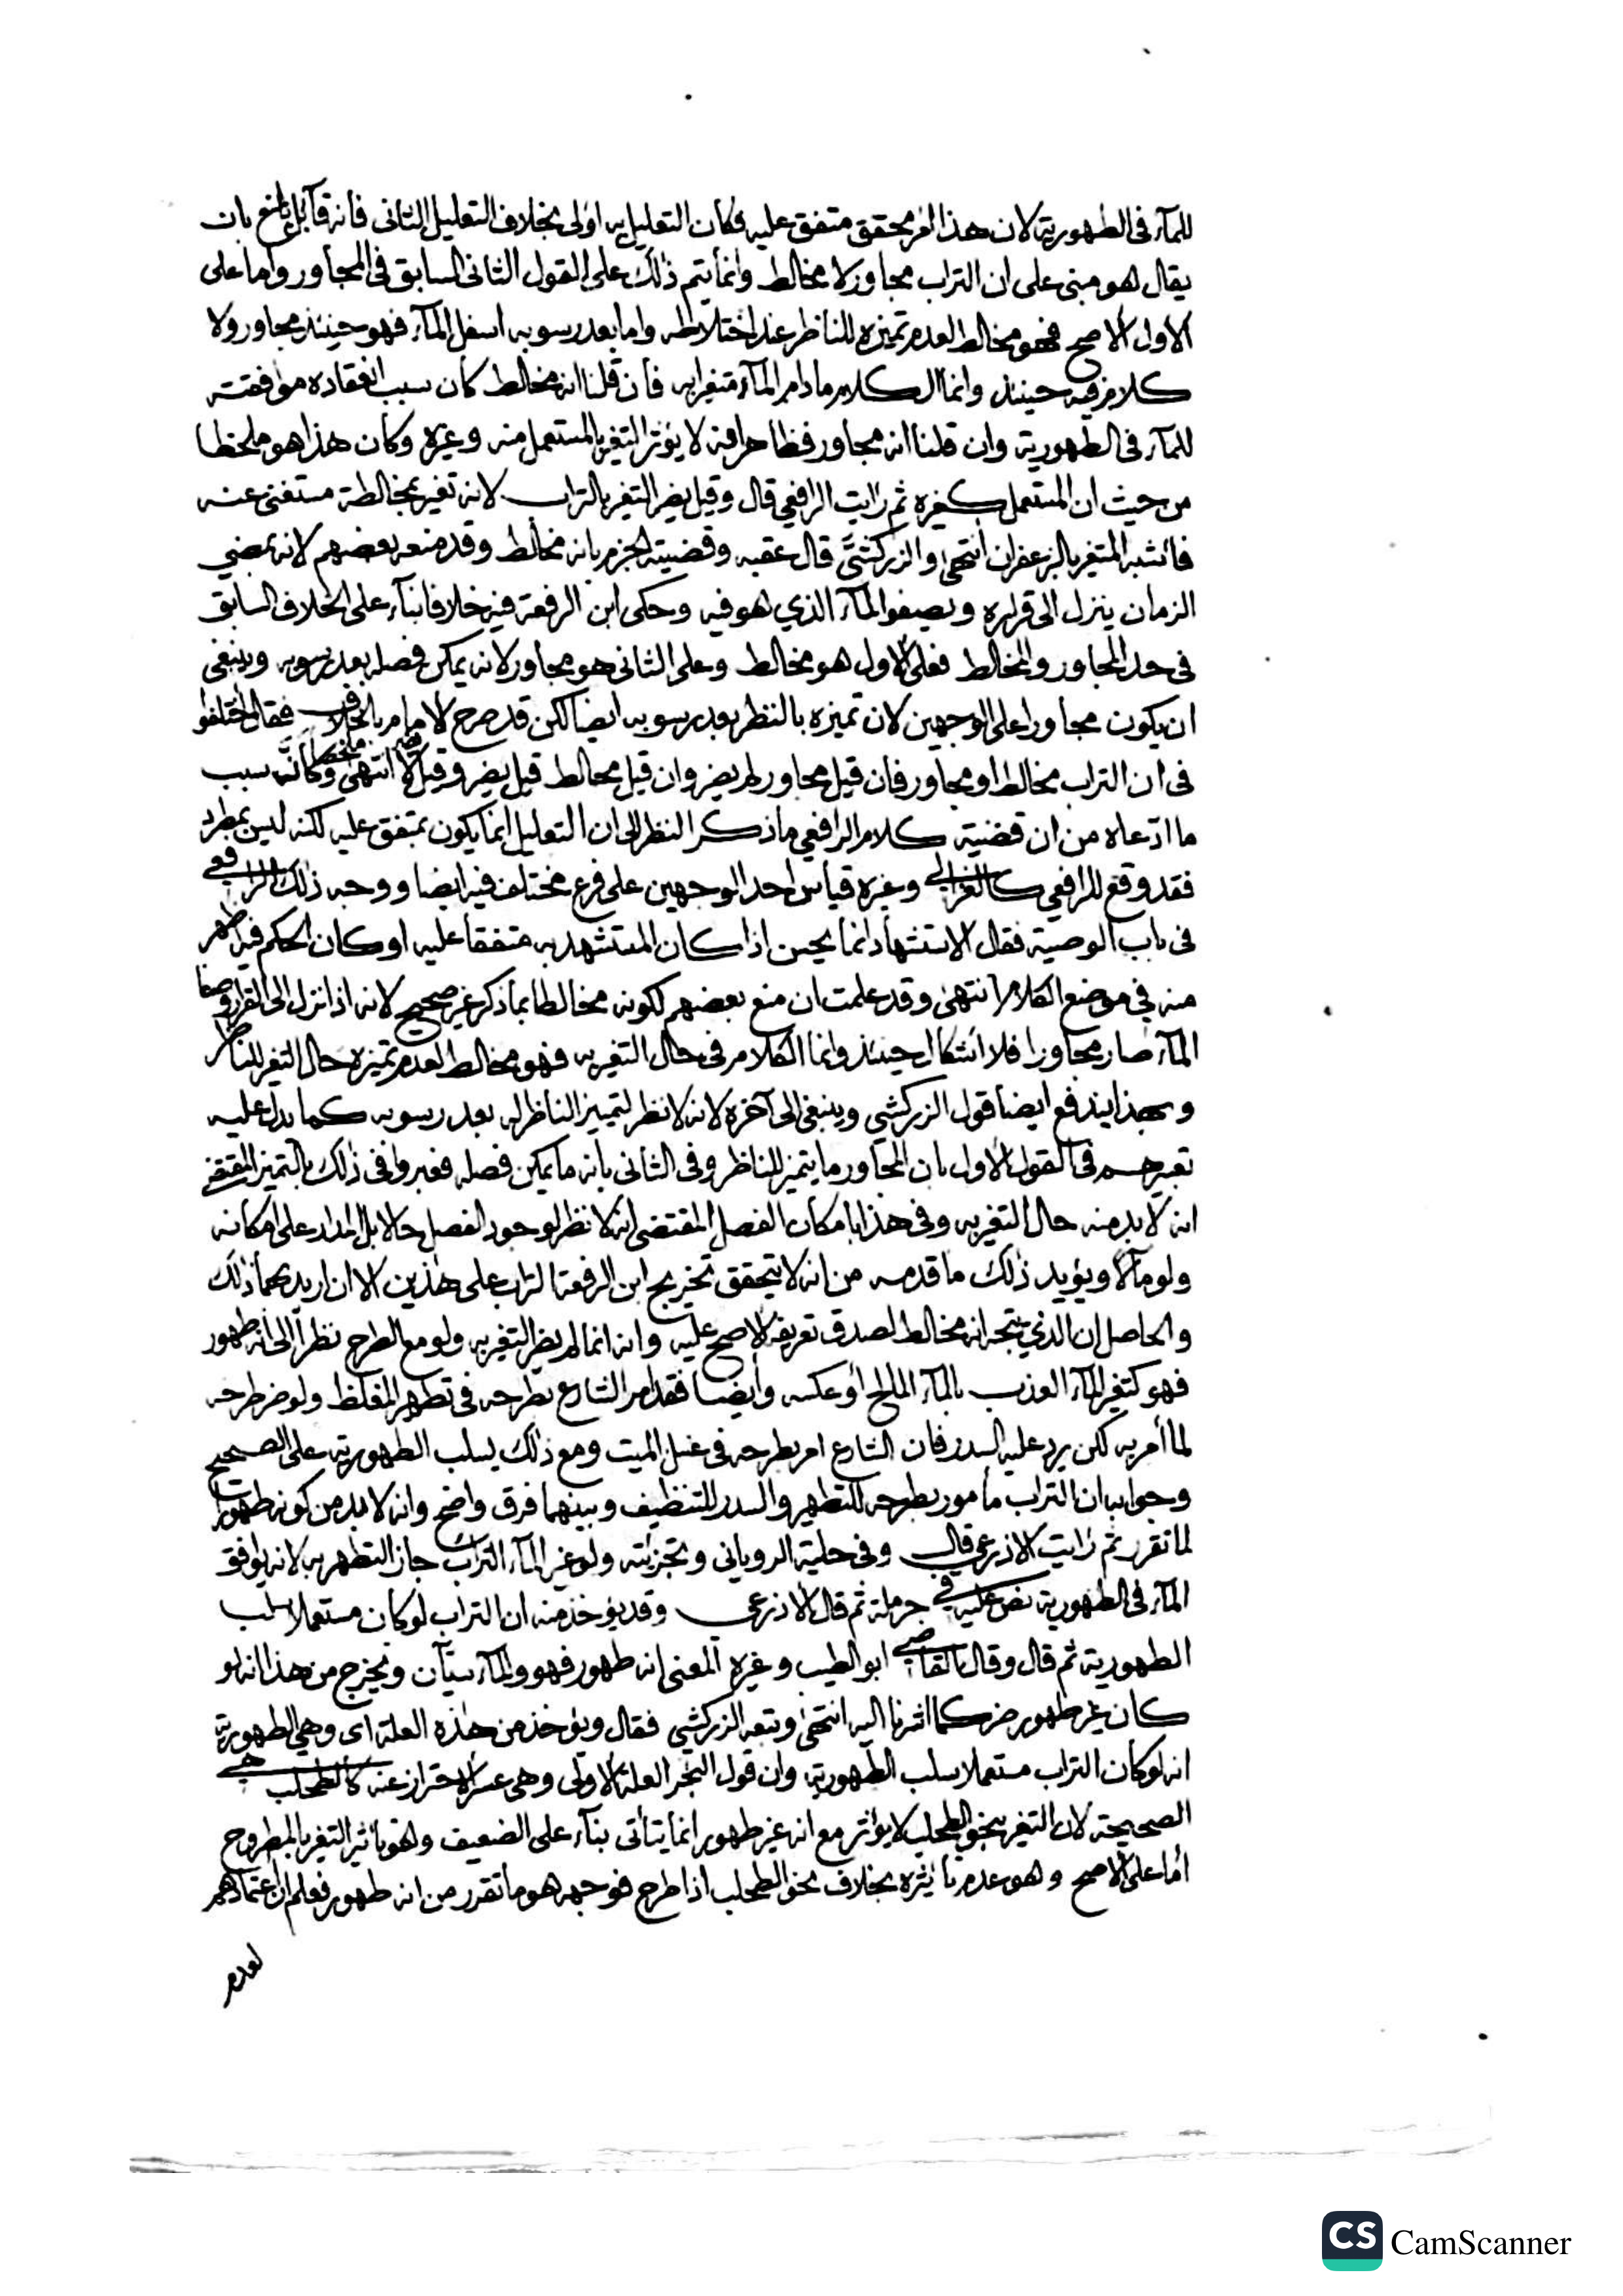 للمآء فى الطهورية لان هذا امر محقق متفق عليه فكان التعليل به اولى بخلاف التعليل الثانى فانه قابل للمنع بان
يقال هو مبنى على ان التراب مجاور لا مخالط وانما يتم ذلك على القول الثانى السابق فى المجاور واما على
الاول الاصح فهو مخالط لعدم تميزه للناظر عند اختلاطه واما بعد رسوبه اسفل المآء فهو حينئذ مجاور ولا
كلام فيه حينئذ وانما الكلام ما دام المآء متغيرا به فان قلنا انه مخالط كان سبب انعقاده موافقته
للمآء فى الطهورية وان قلنا انه مجاور فظاهر انه لا يؤثر التغير بالمستعمل منه وغيره وكان هذا هو ملحظ
من حيث ان المستعمل كغيره ثم رايت الرافعي قال وقيل يضر التغير بالتراب لانه تغير بمخالطة مستغنى عنه
فاشبه المتغير بالزعفران انتهى والزركشي قال عقبه وقضيته الجزم بانه مخالط وقد منعه بعضهم لانه بمضي
الزمان ينزل الى قراره ويصفو المآء الذي هو فيه وحكى ابن الرفعة فيه خلافا بنآء على الخلاف السابق
فى حد المجاور والمخالط فعلى الاول هو مخالط وعلى الثانى هو مجاور لانه يمكن فصله بعد رسوبه وينبغى
ان يكون مجاورا على الوجهين لان تميزه بالنظر بعد رسوبه ايضا لكن قد صرح الامام بالخلاف فقال اختلفوا
فى ان التراب مخالط او مجاور فان قيل مجاور لم يضر وان قيل مخالط قيل يضر وقيل لا يضر انتهى ملخصا وكأنه سبب
ما ادعاه من ان قضية كلام الرافعي ما ذكر النظر الى ان التعليل انما يكون بمتفق عليه لكنه ليس بمطرد
فقد وقع للرافعي كالغزالي وغيره قياس احد الوجهين على فرع مختلف فيه ايضا ووجه ذلك الرافعي
فى باب الوصية فقال الاستشهاد انما يحسن اذا كان المستشهد به متفقا عليه او كان الحكم فيه اظهر
منه في موضع الكلام انتهى وقد علمت ان منع بعضهم لكونه مخالطا بما ذكر غير صحيح لانه اذا نزل الى القرار وصفا
المآء صار مجاورا فلا اشكال حينئذ وانما الكلام فى حال التغير به فهو مخالط لعدم تميزه حال التغير للناظر
وبهذا يندفع ايضا قول الزركشي وينبغى الى آخره لانه لا نظر لتمييز الناظر له بعد رسوبه كما يدل عليه
تعبيرهم فى القول الاول بان المجاور ما يتميز للناظر وفى الثانى بانه ما يمكن فصله فعبروا فى ذلك بالتميز المقتضي
انه لا بد منه حال التغير به وفى هذا بامكان الفصل المقتضى انه لا نظر لوجود الفصل حالا بل المدار على امكانه
ولو مآلا ويؤيد ذلك ما قدمه من انه لا يتحقق تخريج ابن الرفعة التراب على هذين الا ان اريد بهما ذلك
والحاصل ان الذي يتجه انه مخالط لصدق تعريفه الاصح عليه وانه انما لم يضر التغير به ولو مع الطرح نظرا الى انه طهور
فهو كتغير المآء العذب بالمآء المالح او عكسه وايضا فقد امر الشارع بطرحه فى تطهير المغلظ ولو ضر طرحه
لما أمر به لكن يرد عليه السدر فان الشارع امر بطرحه فى غسل الميت ومع ذلك يسلب الطهورية على الصحيح
وجوابه ان التراب مأمور بطرحه للتطهير والسدر للتنظيف وبينهما فرق واضح وانه لا بد من كونه طهورا
لما تقرر ثم رايت الاذرعي قال وفى حلية الروياني وتجزئته ولو غير المآء التراب جاز التطهر به لانه يوافق
المآء فى الطهورية نص عليه في حرملة ثم قال الاذرعي وقد يؤخذ منه ان التراب لو كان مستعملا سلب
الطهورية ثم قال وقال القاضي ابو الطيب وغيره المعنى انه طهور فهو والمآء سيآن ويخرج من هذا انه لو
كان غير طهور ضر كما اشرنا اليه انتهى وتبعه الزركشي فقال ويؤخذ من هذه العلة اى وهي الطهورية
انه لو كان التراب مستعملا سلب الطهورية وان قول البحر العلة الاولى وهى عسر الاحتراز عنه كالطحلب هي
الصحيحة لان التغير بنحو الطحلب لا يؤثر مع انه غير طهور انما يتأتى بنآء على الضعيف وهو تأثير التغير بالمطروح
أما على الاصح وهو عدم تأثيره بخلاف نحو الطحلب اذا طرح فوجهه هو ما تقرر من انه طهور فعلم ان اعتمادهم
لعدم
CS CamScanner